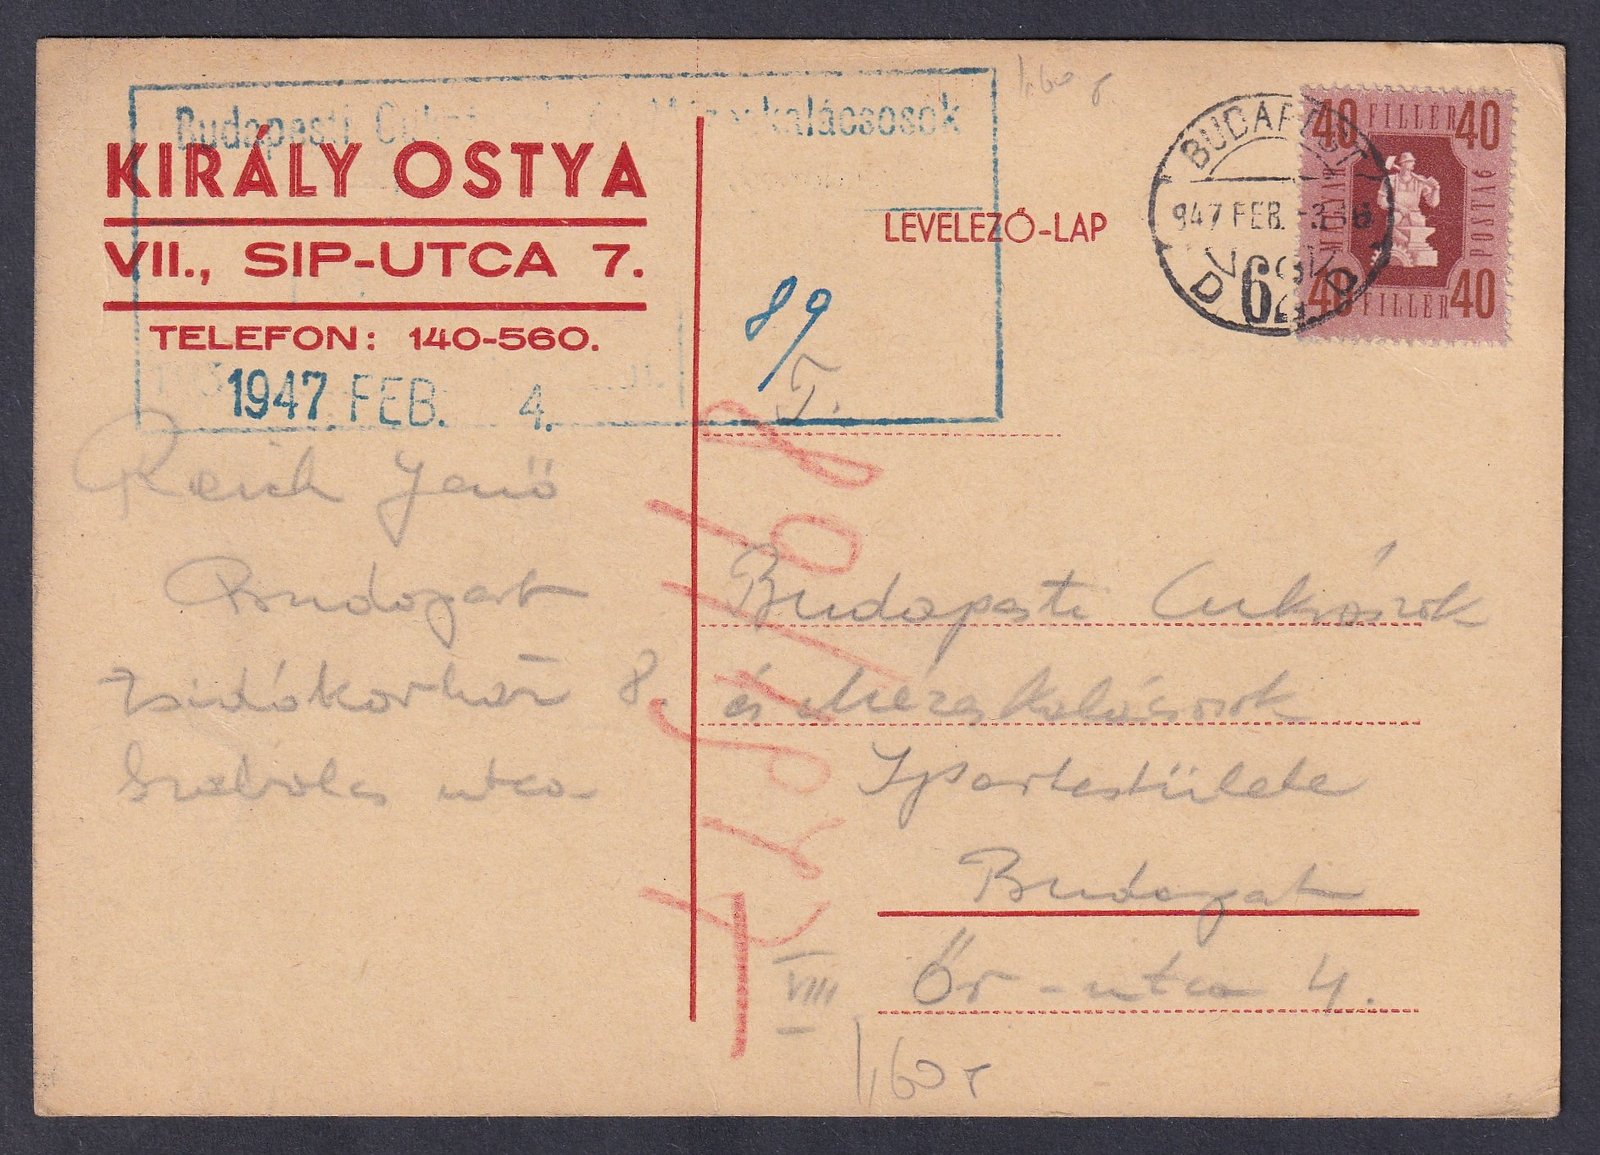 Budapesti Mézeskalácsosok
KIRÁLY OSTYA
VII., SIP-UTCA 7.
TELEFON: 140-560.
1947 FEB. 4.
Reich Jenő
Budapest
Zsidókórház 8.
Szabolcs utca
89
T.
LEVELEZŐ-LAP
1,60
BUDAPEST
947 FEB. -3
62
40 FILLÉR 40
MAGYAR
POSTA
40 FILLÉR 40
Budapesti Cukrászok
és Mézeskalácsosok
Ipartestülete
Budapest
VIII Őr-utca 4.
1,60